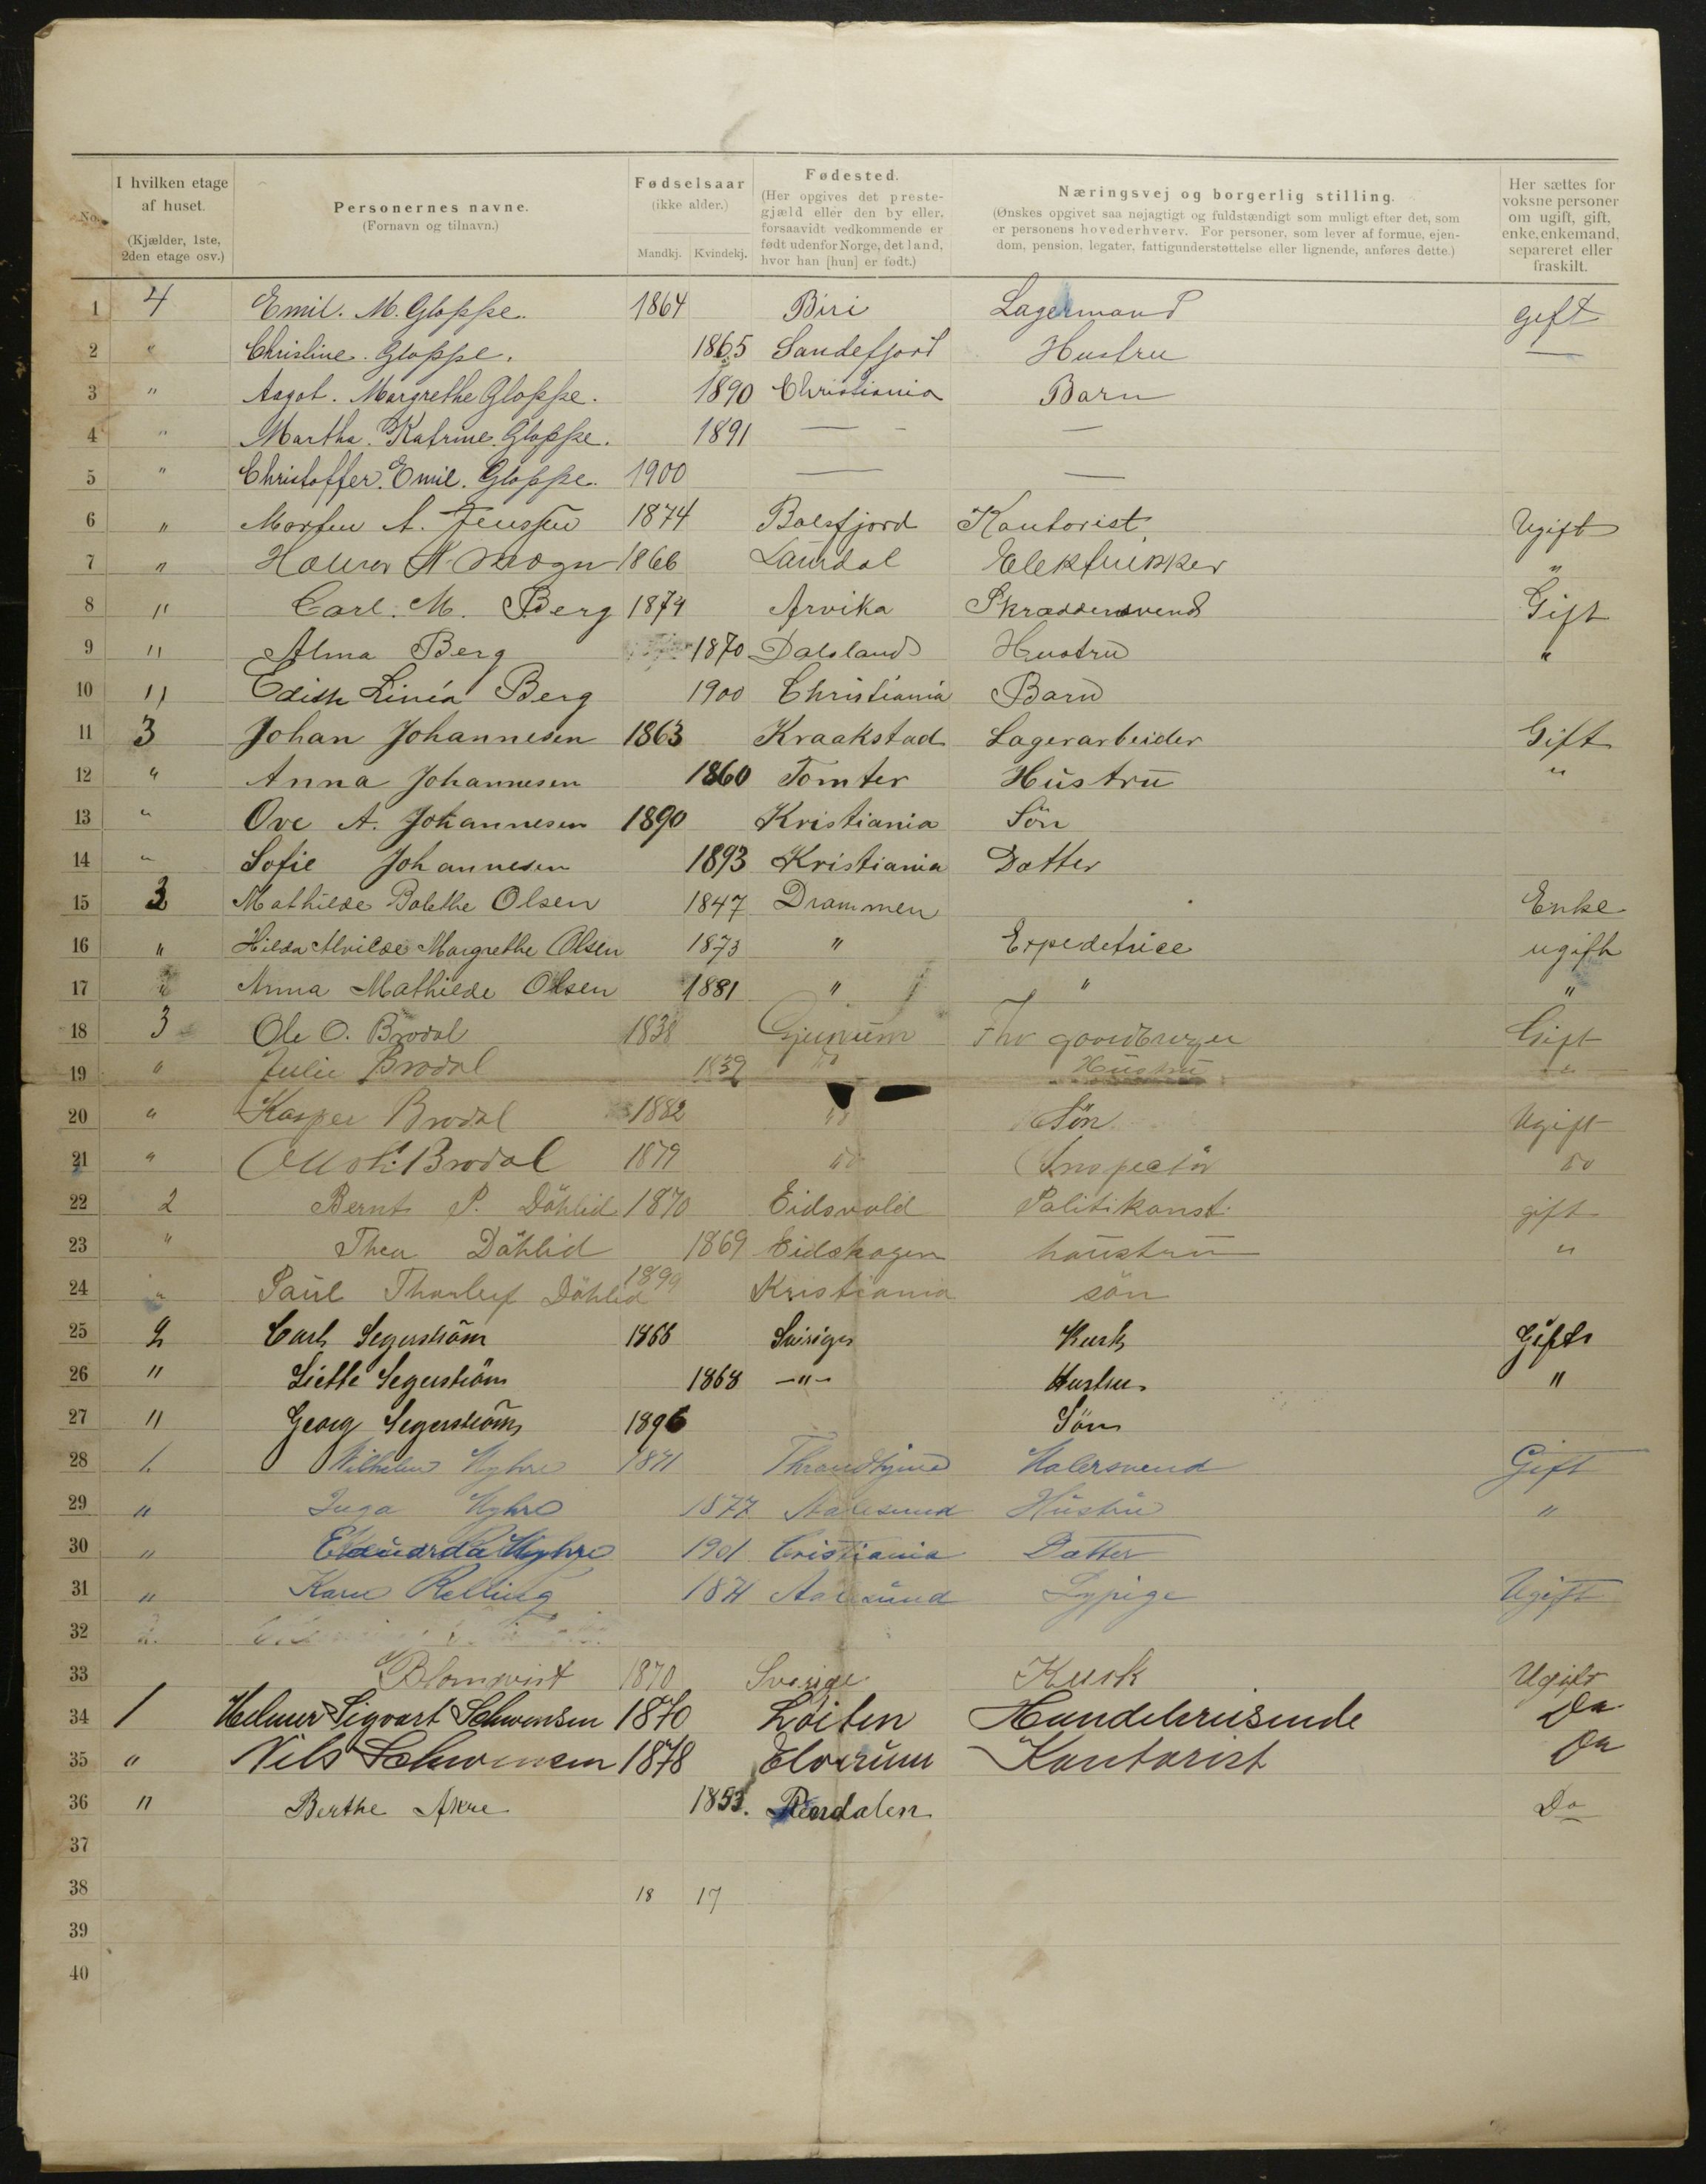 No. I hvilken etage af huset. (Kjælder, 1ste, 2den etage osv.) Personernes navne. (Fornavn og tilnavn.) Fødselsaar (ikke alder.) Mandkj. Kvindekj. Fødested. (Her opgives det prestegjæld eller den by eller, forsaavidt vedkommende er født udenfor Norge, det land, hvor han [hun] er født.) Næringsvej og borgerlig stilling. (Ønskes opgivet saa nøjagtigt og fuldstændigt som muligt efter det, som er personens hovederhverv. For personer, som lever af formue, ejendom, pension, legater, fattigunderstøttelse eller lignende, anføres dette.) Her sættes for voksne personer om ugift, gift, enke, enkemand, separeret eller fraskilt.
1 4 Emil. M. Gloppe. 1864 Biri Lagermand gift
2 " Christine. Gloppe. 1865 Sandefjord Hustru —
3 " Aagot. Margrethe Gloppe. 1890 Christiania Barn
4 " Martha. Katrine. Gloppe. 1891 — —
5 " Christoffer. Emil. Gloppe. 1900 — —
6 " Morten A. Jenssen 1874 Balsfjord Kontorist Ugift
7 " 1866 Laurdal "
8 " Carl. M. Berg 1874 Arvika Skræddersvend Gift
9 " Alma Berg 1870 Dalsland Hustru "
10 " Edith Linéa Berg 1900 Christiania Barn
11 3 Johan Johannesen 1863 Kraakstad Lagerarbeider Gift
12 " Anna Johannesen 1860 Tomter Hustru "
13 " Ove A. Johannesen 1890 Kristiania Sön
14 " Sofie Johannesen 1893 Kristiania Datter
15 3 Mathilde Bolethe Olsen 1847 Drammen Enke
16 " Hilda Alvilde Margrethe Olsen 1873 " Expeditrice ugift
17 " Anna Mathilde Olsen 1881 " " "
18 3 Ole O. Brodal 1838 Fhv gaardbruger Gift
19 " Julie Brodal 1839 do Hustru "
20 " Kasper Brodal 1882 do Sön Ugift
21 " Brodal 1879 do Inspectör do
22 2 Bernt P. Döhlid 1870 Eidsvold Politikonst. gift
23 " Thea Döhlid 1869 Eidskogen haustru "
24 " Paul Thorleif Döhlid 1899 Kristiania sön
25 2 Carl Segerström 1866 Sverige Kusk Gift
26 " Segerström 1868 –"– Hustru "
27 " Georg Segerström 1896 Sön
28 1 Wilhelm Myhre 1871 Throndhjem Malersvend Gift
29 " Inga Myhre 1877 Aalesund Hustru "
30 " Eduarda Myhre 1901 Cristiania Datter
31 " Karen Relling 1871 Aalesund Sypige Ugift
32
33 Blomqvist 1870 Sverige Kusk Ugift
34 1 Helmer Sigvart Schwensen 1870 Löiten Handelsreisende Do
35 " Nils Schwensen 1878 Elverum Kontorist Do
36 " Berthe Akre 1853. Rendalen Do
37
38 18 17
39
40